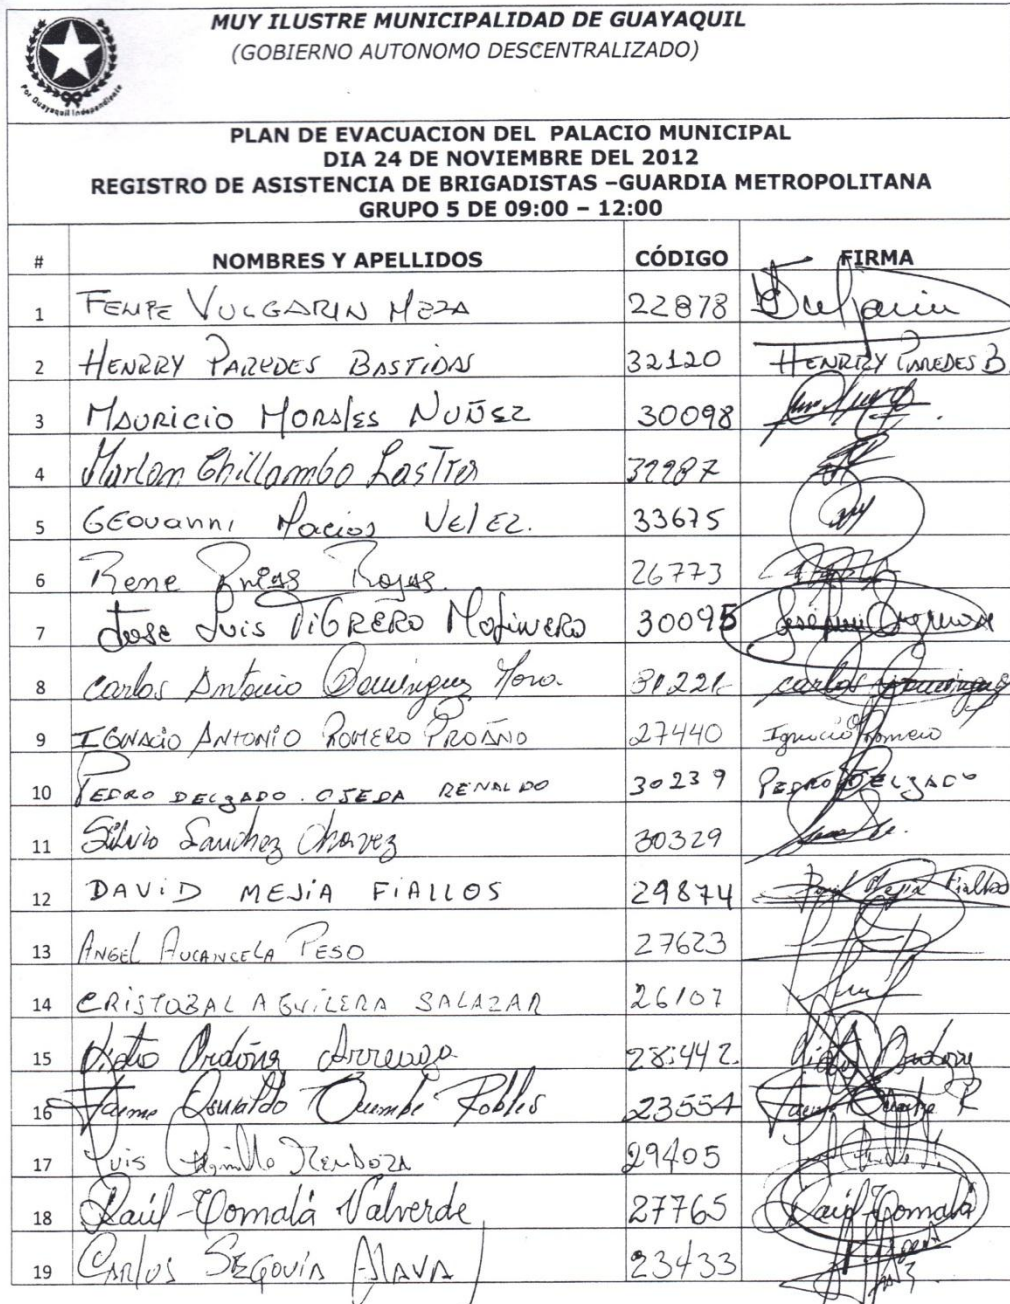 MUY ILUSTRE MUNICIPALIDAD DE GUAYAQUIL
(GOBIERNO AUTONOMO DESCENTRALIZADO)
Por Guayaquil Independiente
PLAN DE EVACUACION DEL PALACIO MUNICIPAL
DIA 24 DE NOVIEMBRE DEL 2012
REGISTRO DE ASISTENCIA DE BRIGADISTAS –GUARDIA METROPOLITANA
GRUPO 5 DE 09:00 – 12:00
# NOMBRES Y APELLIDOS CÓDIGO FIRMA
1 FELIPE VULGARIN MEZA 22878
2 HENRRY PAREDES BASTIDAS 32120 HENRRY PAREDES B.
3 MAURICIO MORALES NUÑEZ 30098
4 Marlon Chillambo Lastra 32287
5 GEOVANNI Macias VELEZ. 33675
6 Rene Rojas. 26773
7 Jose Luis TIGRERO Molinero 30095
8 Carlos Antonio Dominguez Mora. 30221 Carlos Dominguez
9 IGNACIO ANTONIO ROMERO PROAÑO 27440 Ignacio Romero
10 PEDRO DELGADO OJEDA RENALDO 30239 PEDRO DELGADO
11 Silvio Sanchez Chavez 30329
12 DAVID MEJIA FIALLOS 29874 David Mejia Fiallos
13 ANGEL AUCANCELA PESO 27623
14 CRISTOBAL AGUILERA SALAZAR 26107
15 Ordoñez 28442
16 Jaime Oswaldo Quimbe Robles 23554 Jaime R
17 Luis MENDOZA 29405
18 Raúl Tomalá Valverde 27765 Raúl Tomalá
19 CARLOS SEGOVIA ALAVA 23433